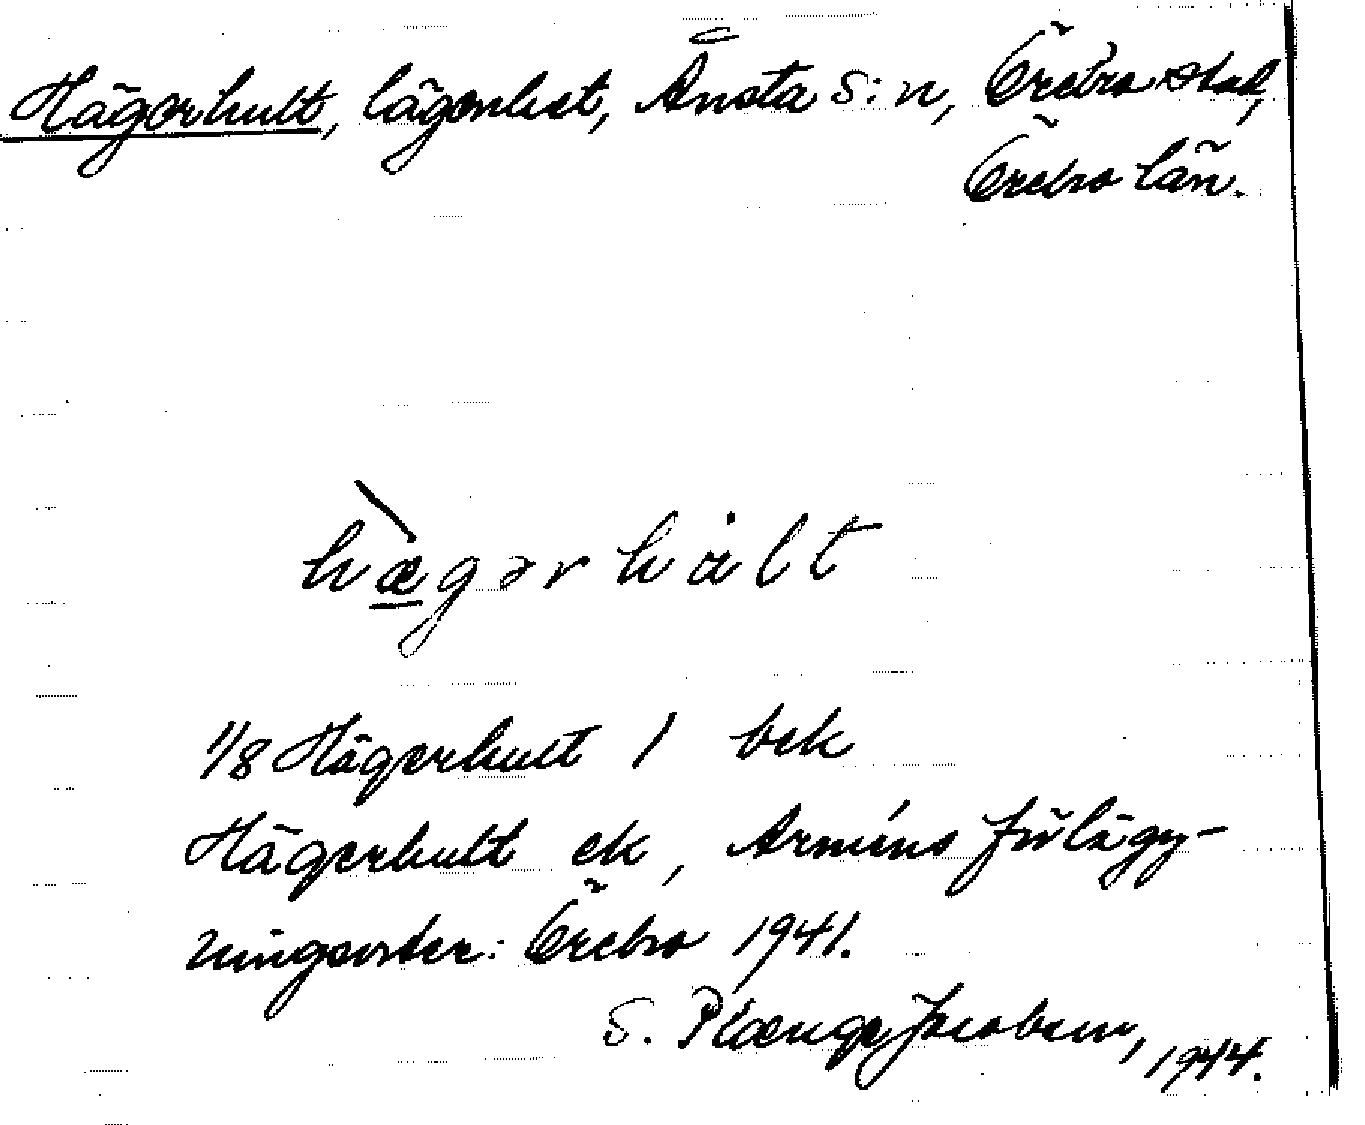 Hägerhult, lägenhet, Ånsta s:n, Örebro stad,
Örebro län.
hæ̲̀gərhålt
1/8 Hägerhult 1 bek
Hägerhult ek, Arméns förlägg-
ningsorter: Örebro 1941.
S. Plænge Jacobson, 1944.